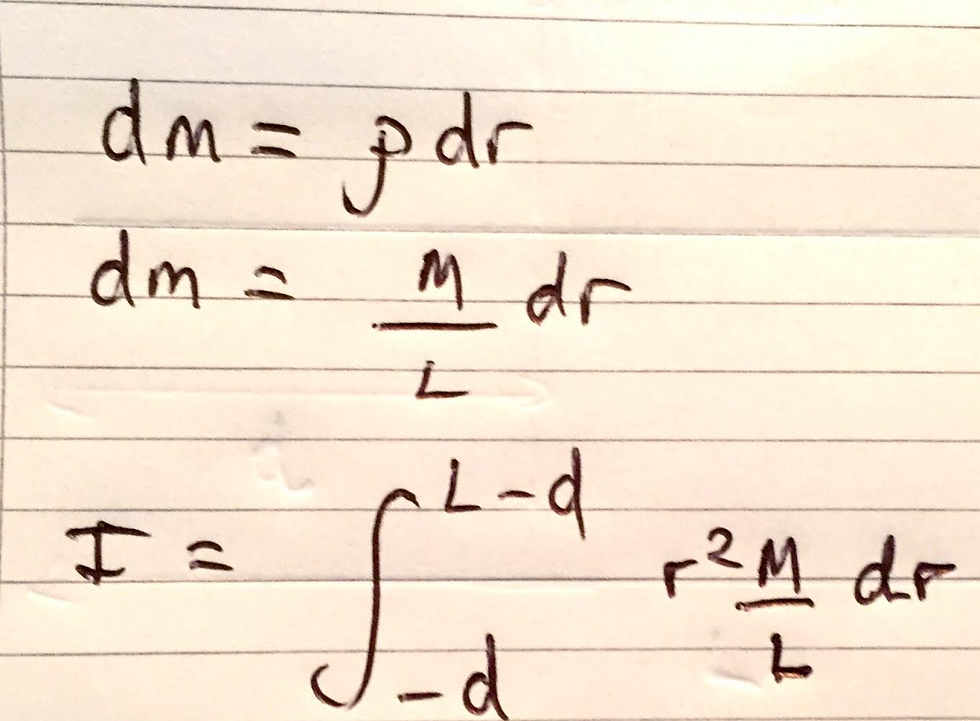 dm = ρ dr
dm = M/L dr
I = ∫_{-d}^{L-d} r² M/L dr